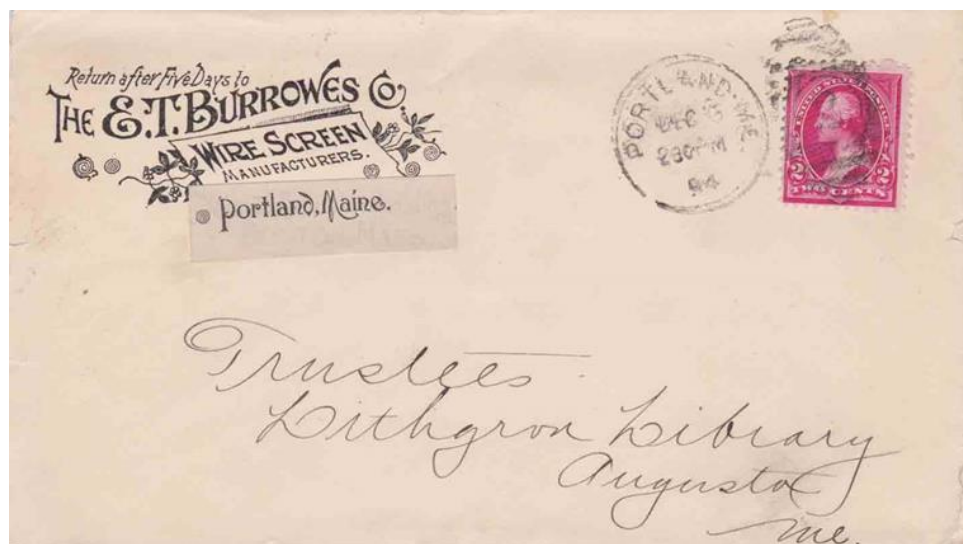 Return after Five Days to
THE E.T. BURROWES CO.
WIRE SCREEN
MANUFACTURERS.
Portland, Maine.
PORTLAND, ME.
DEC
230 PM
94
UNITED STATES POSTAGE
2 2
TWO CENTS
Trustees
Lithgron Library
Augusta
Me.